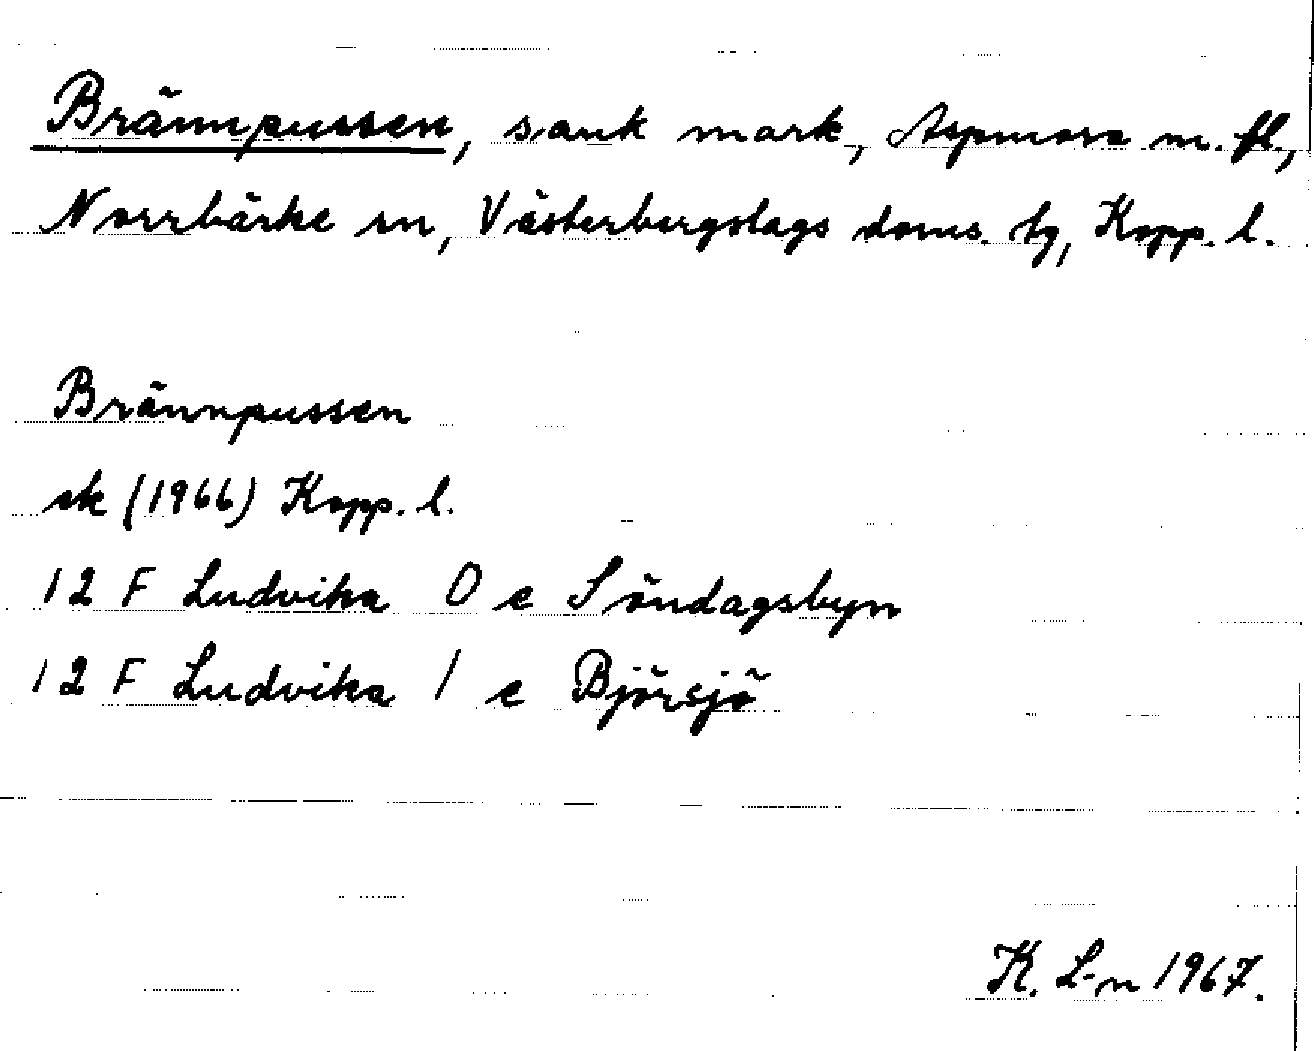 Brännpussen, sank mark, Aspmora m. fl,
Norrbärke sn, Västerbergslags doms. tg, Kopp. l.
Brännpussen
ek (1966) Kopp. l.
12 F Ludvika 0 e Söndagsbyn
12 F Ludvika 1 e Björsjö
K. L-n 1967.